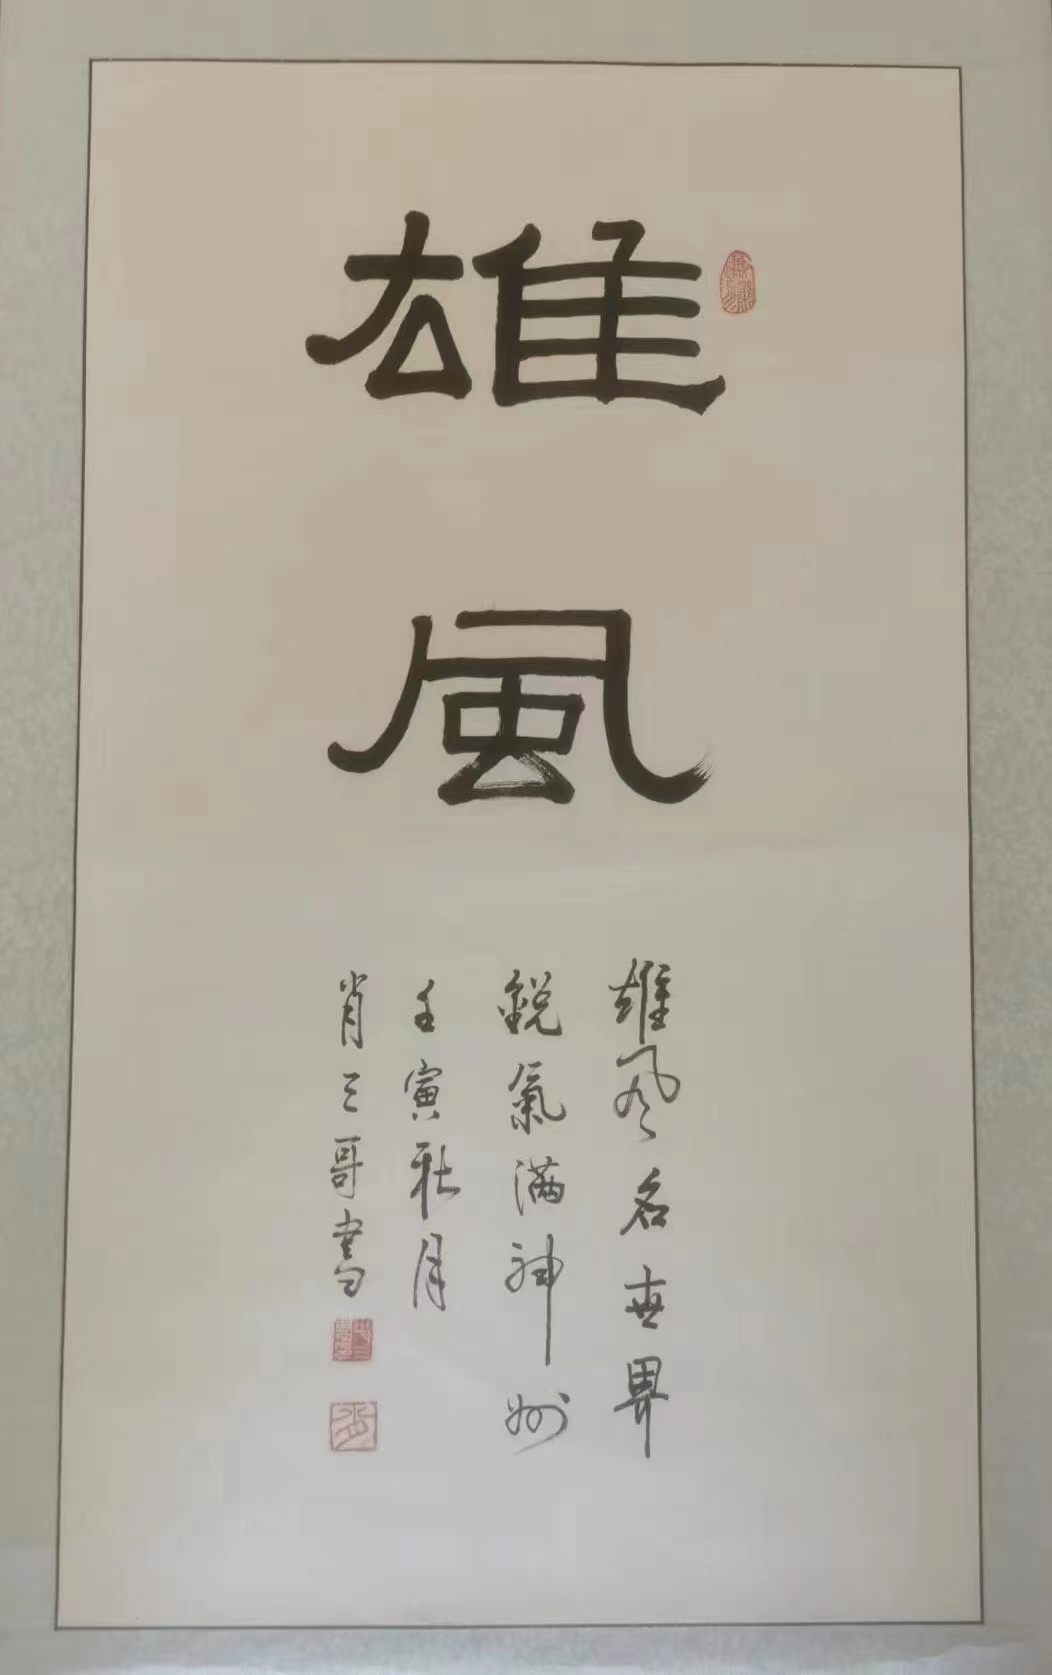 雄風
雄风名世界
銳氣满神州
壬寅秋月
肖三哥書